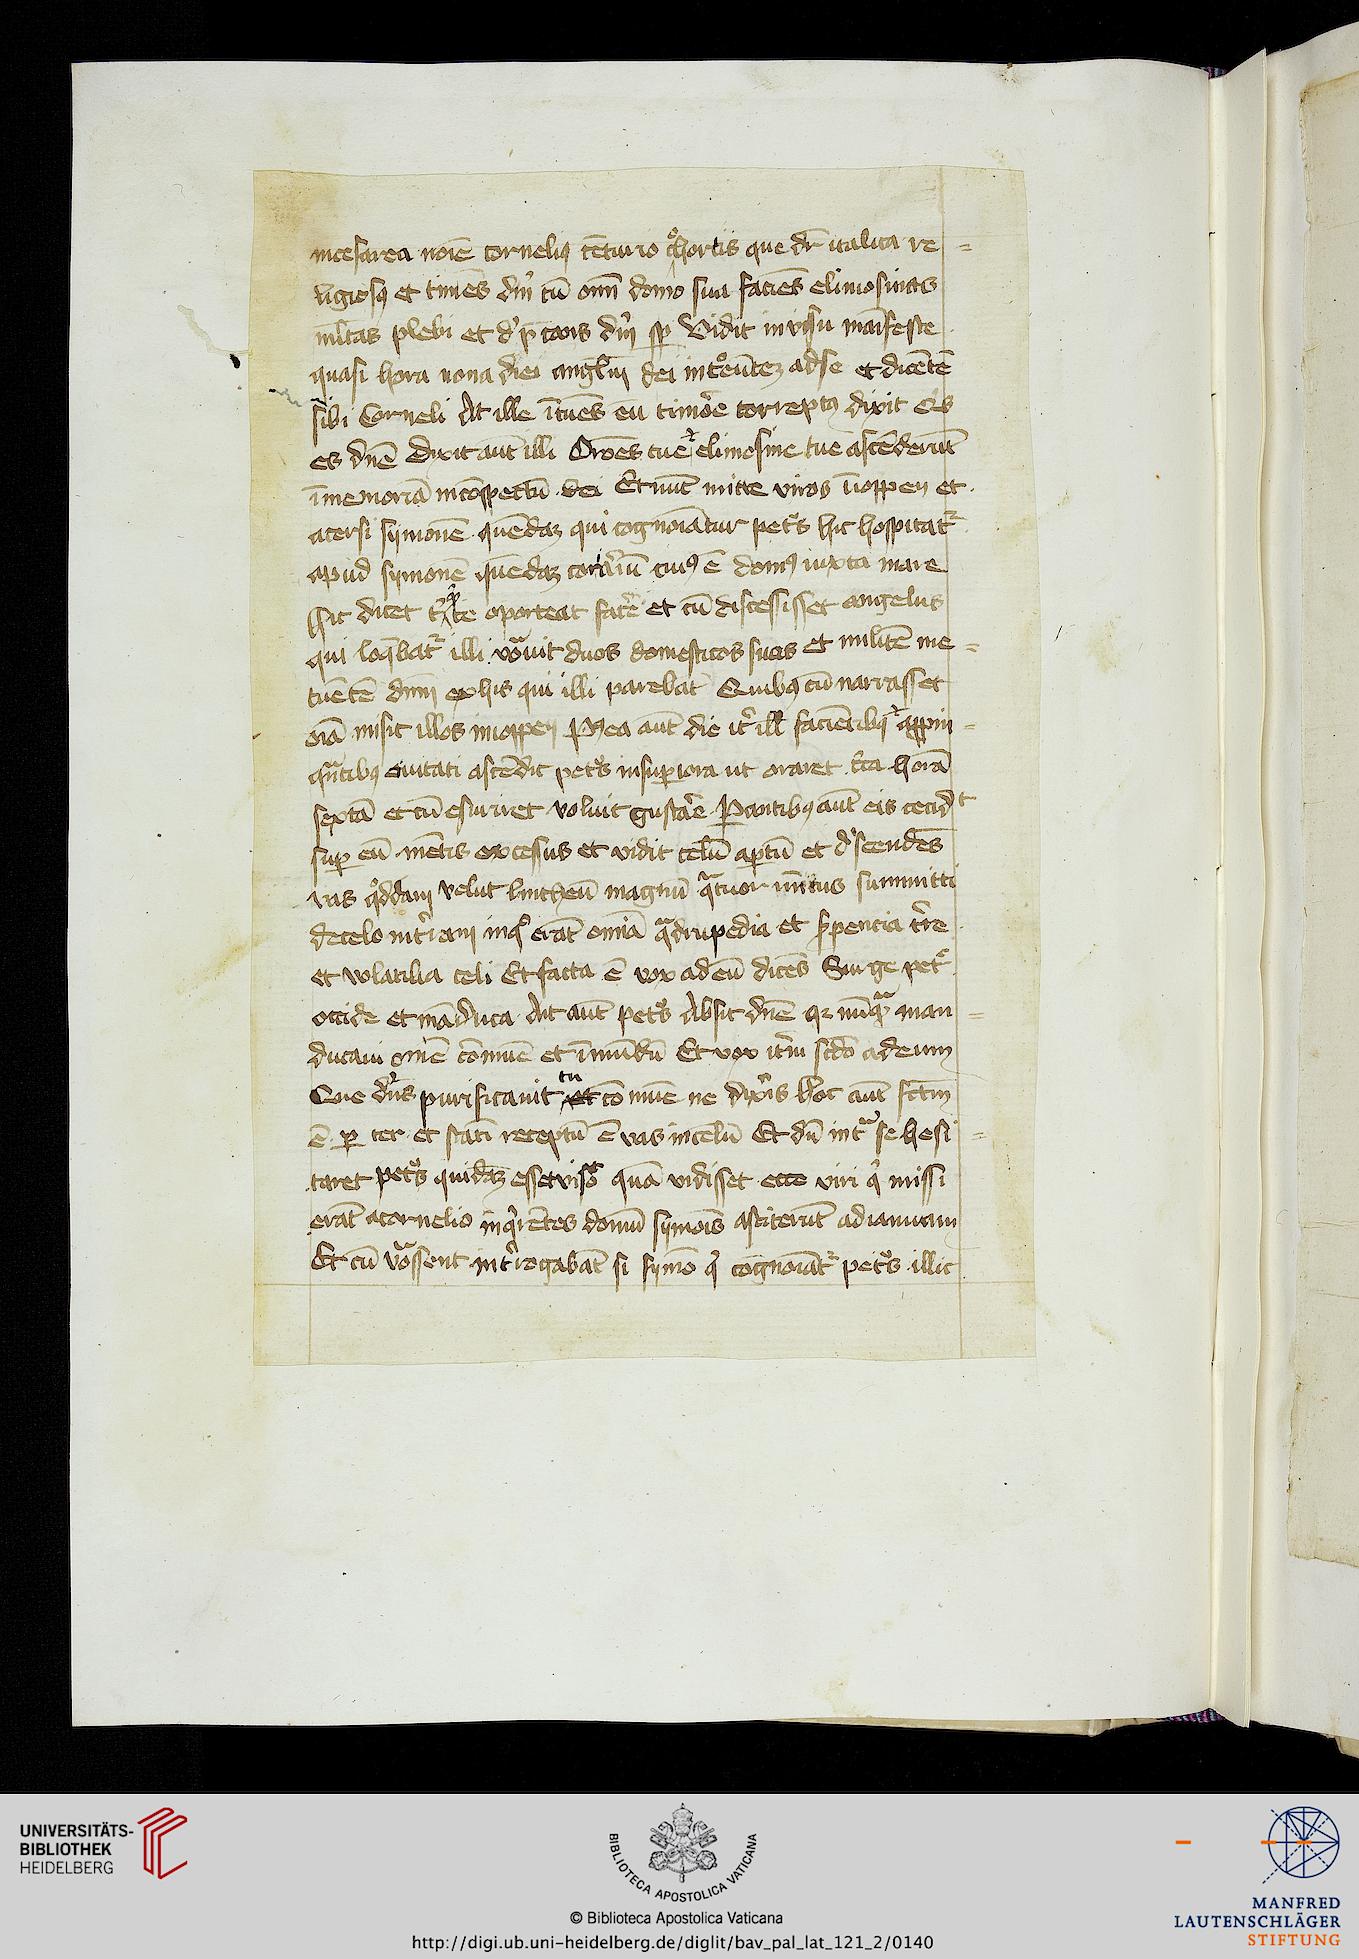 incesarea noīe cornelius cēturio chortis que dr̄ italica re=
ligiosus et timēs dm̄ cū omī domo sua faciēs elimosinas
ml̄tas plebi et dep̄cans dm̄ sp̄ Vidit in visu maīfeste
quasi hora nona diei angl̄m dei introeūtez adse et dicētē
sibi Corneli At ille ītuēs eū timore correptus dixit q̇s
es dnē dixit aūt illi Orōes tue et elimosine tue ascēderūt
īmemoriā incōspectū dei Et nūc mitte viros īioppen et
acersi symonē quēdaz qui cognoīatur petrus hic hospitatr
apud symonē quēdaz coriariū cuius ē domus iuxta mare
hic dicet t q te oporteat facere et cū discessisset angelus
qui loq̄batr illi vocauit duos domesticos suos et militē me=
tuētē dnm ex his qui illi parebāt Quibus cū narrasset
oīa misit illos inioppen Postea aūt die iter ill facientibus et appin=
quātibus ciuitati ascēdit petrus insuperiora ut oraret circa horā
sextā et cū esuriret voluit gustare Parantibus aūt eis cecidit
super eū mētis excessus et vidit celū apertū et descendēs
vas qoddam velut lintheū magnū quatuor initus summitti
decelo interram inquo erāt omīa quadrupedia et serpencia terre
et volatilia celi Et facta ē vox ad eū dicēs Surge petre
occide et māduca Ait aūt petrus Absit dnē qr nūqua man=
ducaui omē cōmūe et īmūdū Et vox iterm scdō adeum
Que dūs purificauit tu et cōmūe ne dixeris hoc aūt fctm
ē per ter et stati receptū ē vas incelū Et dū intra se hesi=
taret petrus quidaz esset visio quā vidisset ecce viri qi missi
erāt acornelio inqirētes domū symōis astiterūt adianuam
Et cū vocassent interrogabāt si symō qi cognoīatr petrus illic
UNIVERSITÄTS-
BIBLIOTHEK
HEIDELBERG
BIBLIOTECA APOSTOLICA VATICANA
© Biblioteca Apostolica Vaticana
http://digi.ub.uni-heidelberg.de/diglit/bav_pal_lat_121_2/0140
MANFRED
LAUTENSCHLÄGER
STIFTUNG